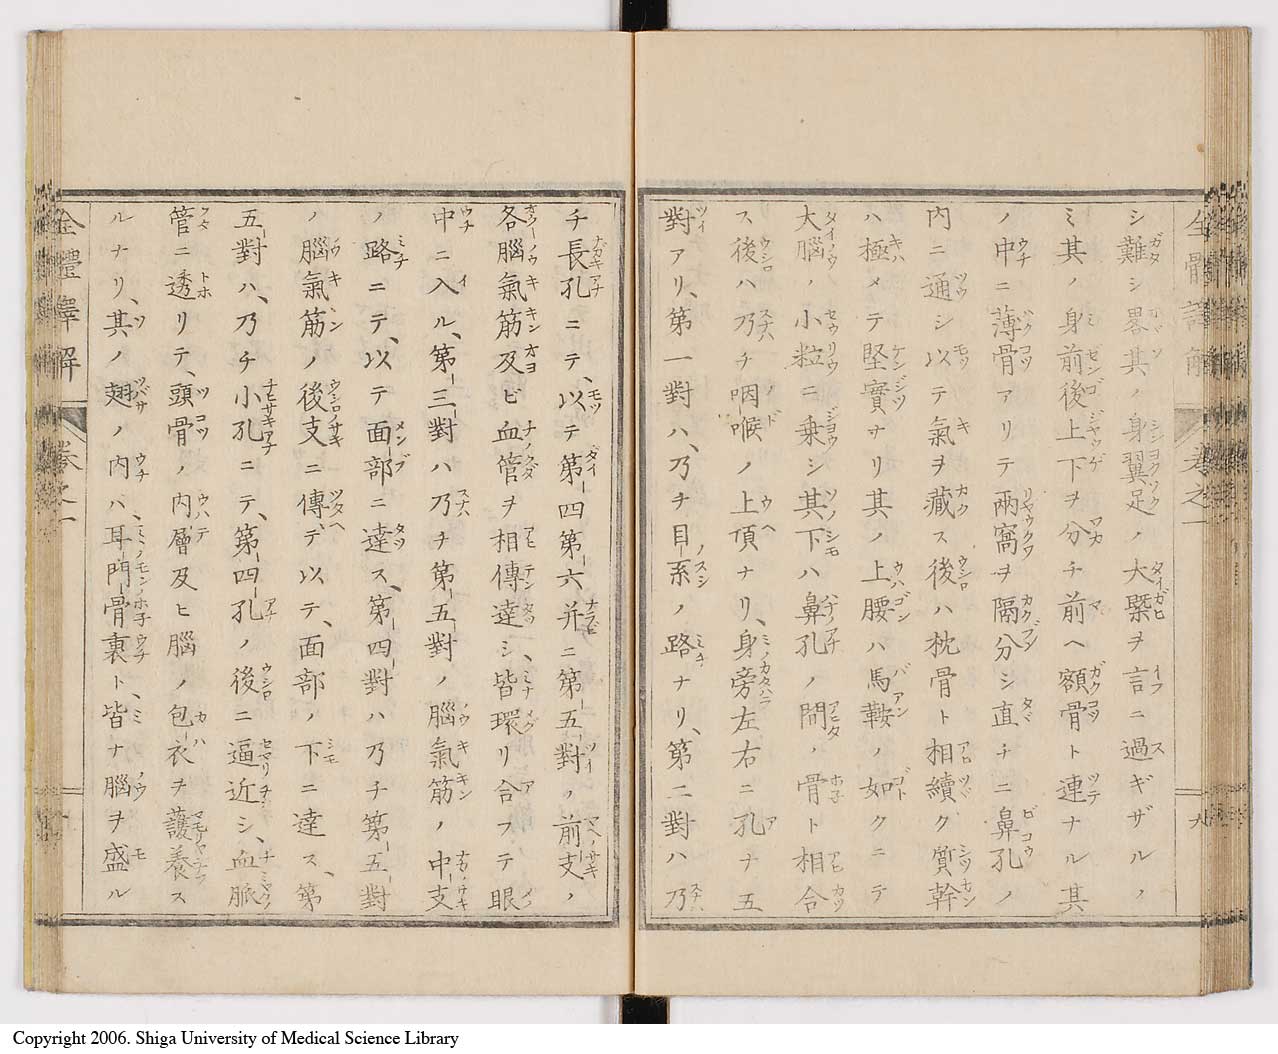 シ難シ畧其ノ身翼足ノ大槩ヲ言ニ過ギザルノ
ミ其ノ身前後上下ヲ分チ前ヘ額骨ト連ナル其
ノ中ニ薄骨アリテ兩窩ヲ隔分シ直チニ鼻孔ノ
内ニ通シ以テ氣ヲ藏ス後ハ枕骨ト相續ク質幹
ハ極メテ堅實ヲリ其ノ上腰ハ馬鞍ノ如クニテ
大腦ノ小粒ニ乗シ其下ハ鼻孔ノ間ノ骨ト相合
ス後ハ乃チ咽喉ノ上頂ナリ身旁左右ニ孔ナ五
對アリ、第一對ハ、乃チ目系ノ路ナリ、第二對ハ乃
チ長孔ニテ、以テ第四第六并ニ第五對ノ前支ノ
各腦氣筋及ビ血管ヲ相傳達シ、皆環リ合フテ眼
中ニ入ル、第三對ハ乃チ第五對ノ腦氣筋ノ中支
ノ路ニテ、以テ面部ニ達ス、第四對ハ乃チ第五對
ノ腦氣筋ノ後支ニ傳テ、以テ、面部ノ下ニ達ス、第
五對ハ、乃チ小孔ニテ、第四孔ノ後ニ逼近シ、血脈
管ニ透リテ、頭骨ノ内層及ヒ腦ノ包衣ヲ護養ス
ルナリ、其ノ翅ノ内ハ、耳門骨裏ト、皆ナ腦ヲ盛ル
全體譯解 卷之一
Copyright 2006. Shiga University of Medical Science Library